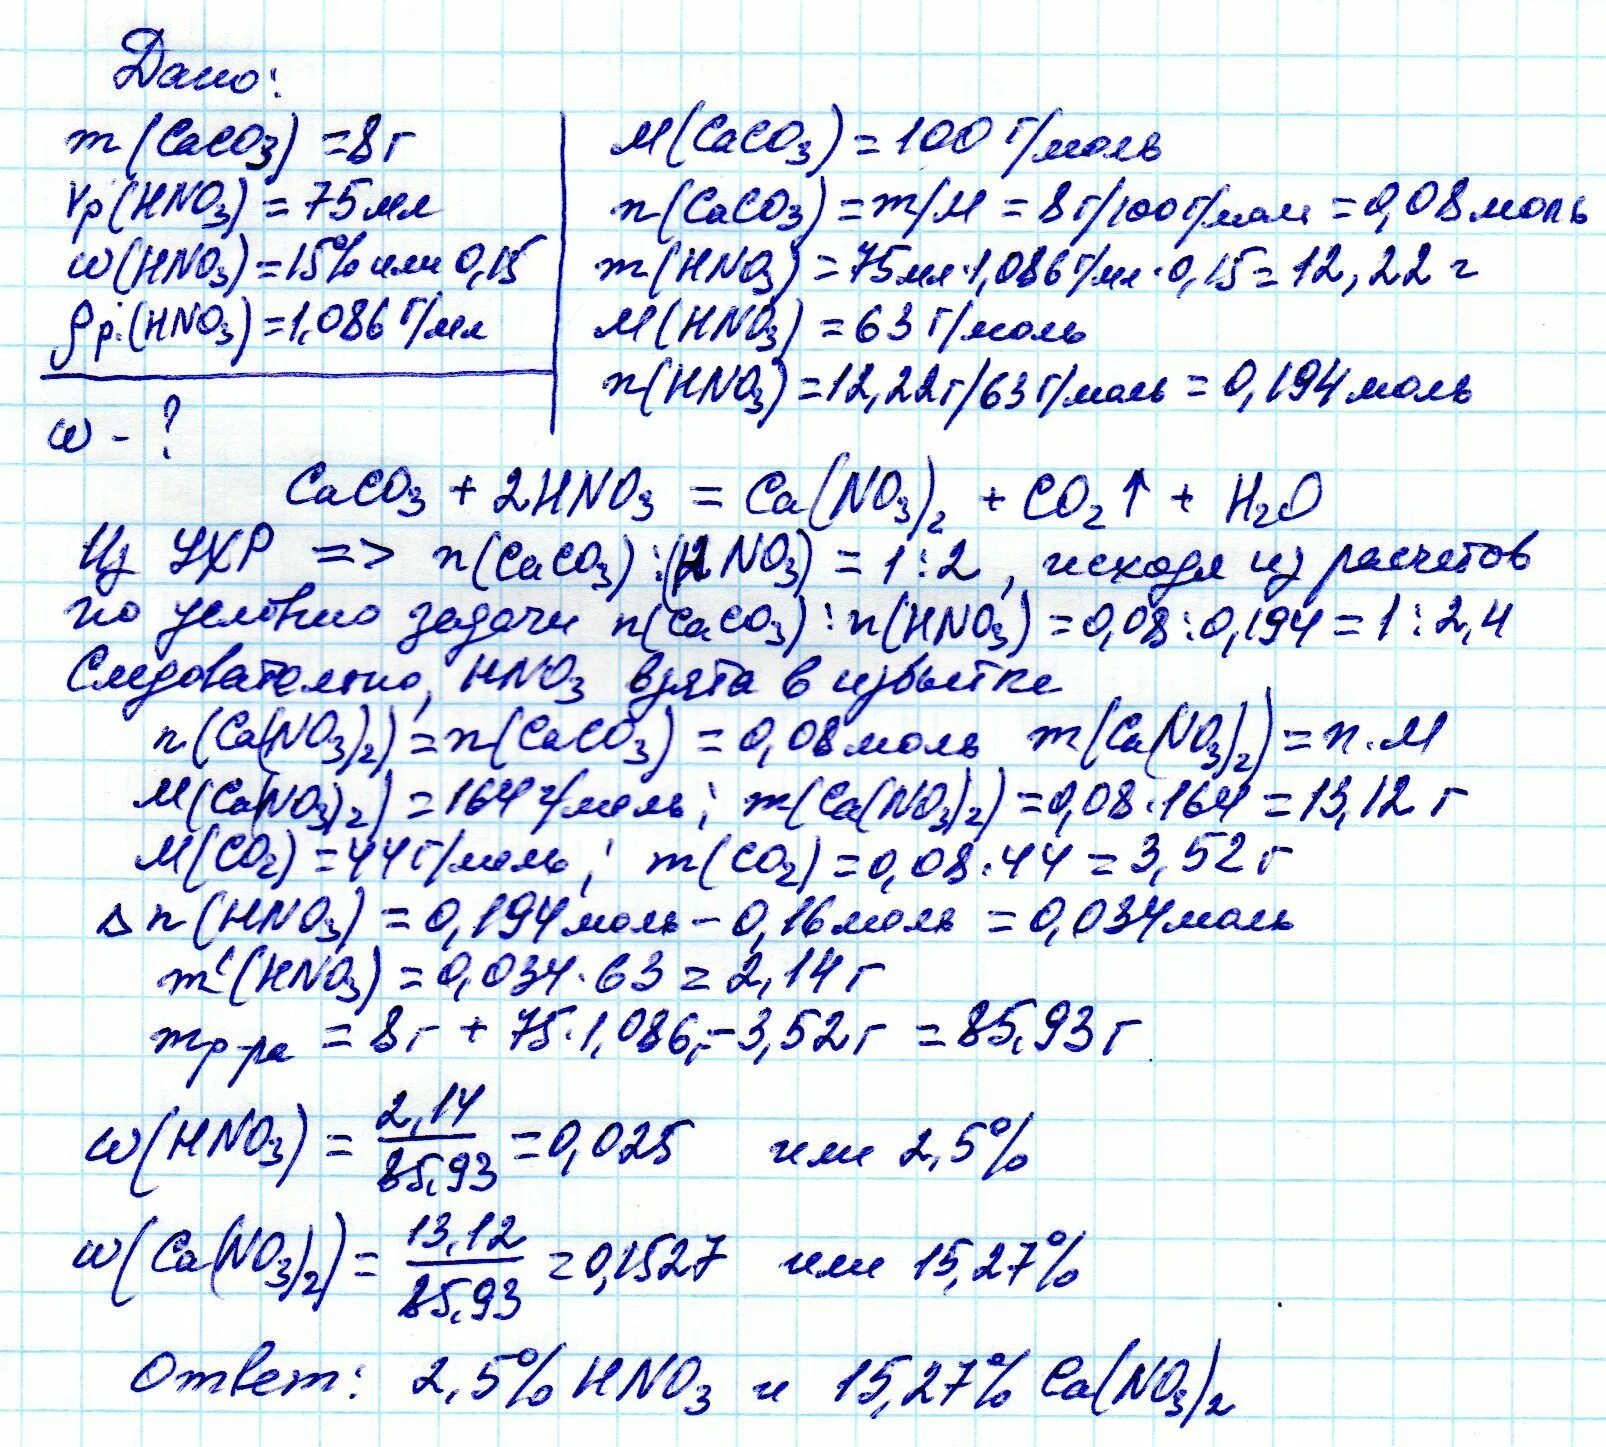 Дано:
m(CaCO3) = 8г
Vр(HNO3) = 75мл
w(HNO3) = 15% или 0,15
ρр.(HNO3) = 1,086 г/мл
w - ?
M(CaCO3) = 100 г/моль
n(CaCO3) = m/M = 8г/100г/моль = 0,08 моль
m(HNO3) = 75мл·1,086г/мл·0,15 = 12,22 г
M(HNO3) = 63 г/моль
n(HNO3) = 12,22г/63г/моль = 0,194 моль
CaCO3 + 2HNO3 = Ca(NO3)2 + CO2↑ + H2O
Из УХР => n(CaCO3):(HNO3) = 1:2, исходя из расчетов
по условию задачи n(CaCO3):n(HNO3) = 0,08:0,194 = 1:2,4
Следовательно, HNO3 взята в избытке
n(Ca(NO3)2) = n(CaCO3) = 0,08 моль m(Ca(NO3)2) = n·M
M(Ca(NO3)2) = 164 г/моль; m(Ca(NO3)2) = 0,08·164 = 13,12 г
M(CO2) = 44 г/моль; m(CO2) = 0,08·44 = 3,52 г
Δn(HNO3) = 0,194 моль - 0,16 моль = 0,034 моль
m'(HNO3) = 0,034·63 = 2,14 г
mр-ра = 8г + 75·1,086 - 3,52г = 85,93 г
w(HNO3) = 2,14/85,93 = 0,025 или 2,5%
w(Ca(NO3)2) = 13,12/85,93 = 0,1527 или 15,27%
Ответ: 2,5% HNO3 и 15,27% Ca(NO3)2